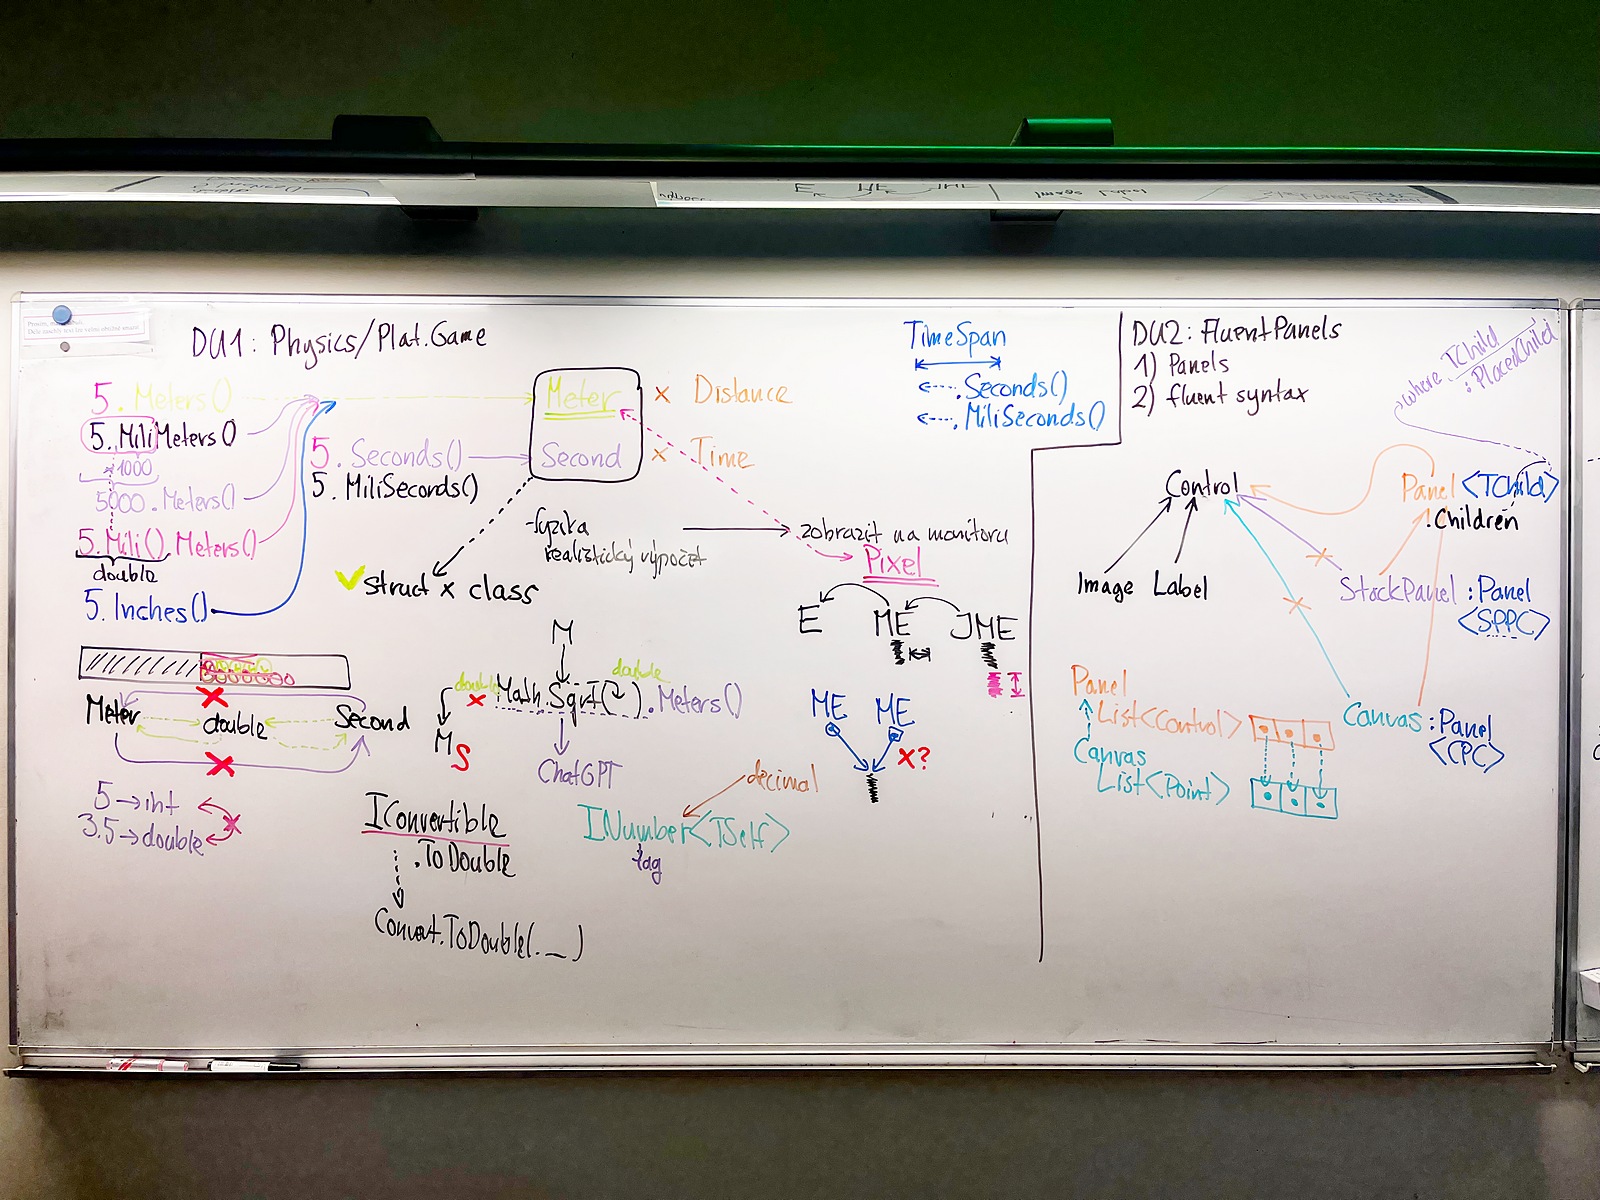 DU1: Physics/Plat.Game
5.Meters()
5.MiliMeters()
*1000
5000.Meters()
5.Mili().Meters()
double
5.Inches()
5.Seconds()
5.MiliSeconds()
Meter x Distance
Second x Time
-fyzika
realistický výpočet
zobrazit na monitoru
Pixel
struct x class
TimeSpan
.Seconds()
.MiliSeconds()
E ME JME
ME ME
x?
Meter double Second
5→int
3.5→double
M
double double
Math.Sqrt( ).Meters()
M
S
ChatGPT
IConvertible
.ToDouble
Convert.ToDouble(.__)
decimal
INumber<TSelf>
DU2: FluentPanels
1) Panels
2) fluent syntax
where TChild
: PlacedChild
Control
Image Label
Panel<TChild>
Children
StackPanel : Panel
<SPPC>
Canvas : Panel
<CPC>
Panel
List<Control>
Canvas
List<Point>